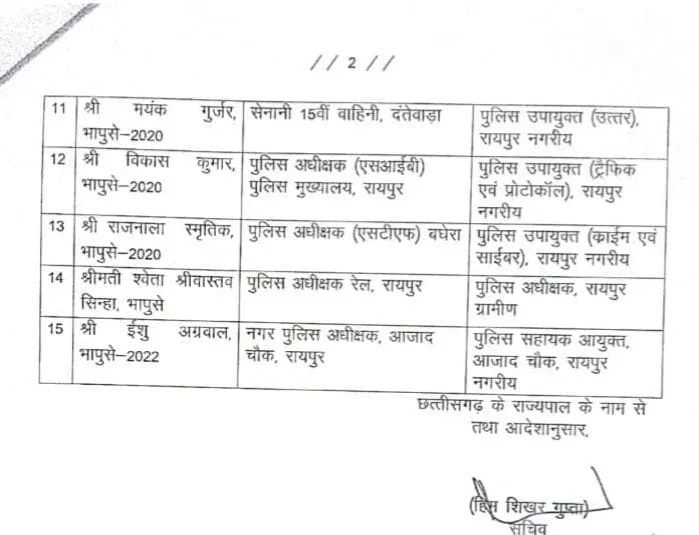 // 2 //
11 श्री मयंक गुर्जर, सेनानी 15वीं वाहिनी, दंतेवाड़ा पुलिस उपायुक्त (उत्तर),
भापुसे–2020 रायपुर नगरीय
12 श्री विकास कुमार, पुलिस अधीक्षक (एसआईबी) पुलिस उपायुक्त (ट्रैफिक
भापुसे–2020 पुलिस मुख्यालय, रायपुर एवं प्रोटोकॉल), रायपुर
नगरीय
13 श्री राजनाला स्मृतिक, पुलिस अधीक्षक (एसटीएफ) बघेरा पुलिस उपायुक्त (काईम एवं
भापुसे–2020 साईबर), रायपुर नगरीय
14 श्रीमती श्वेता श्रीवास्तव पुलिस अधीक्षक रेल, रायपुर पुलिस अधीक्षक, रायपुर
सिन्हा, भापुसे ग्रामीण
15 श्री ईशु अग्रवाल, नगर पुलिस अधीक्षक, आजाद पुलिस सहायक आयुक्त,
भापुसे–2022 चौक, रायपुर आजाद चौक, रायपुर
नगरीय
छत्तीसगढ़ के राज्यपाल के नाम से
तथा आदेशानुसार,
शिखर गुप्ता)
सचिव